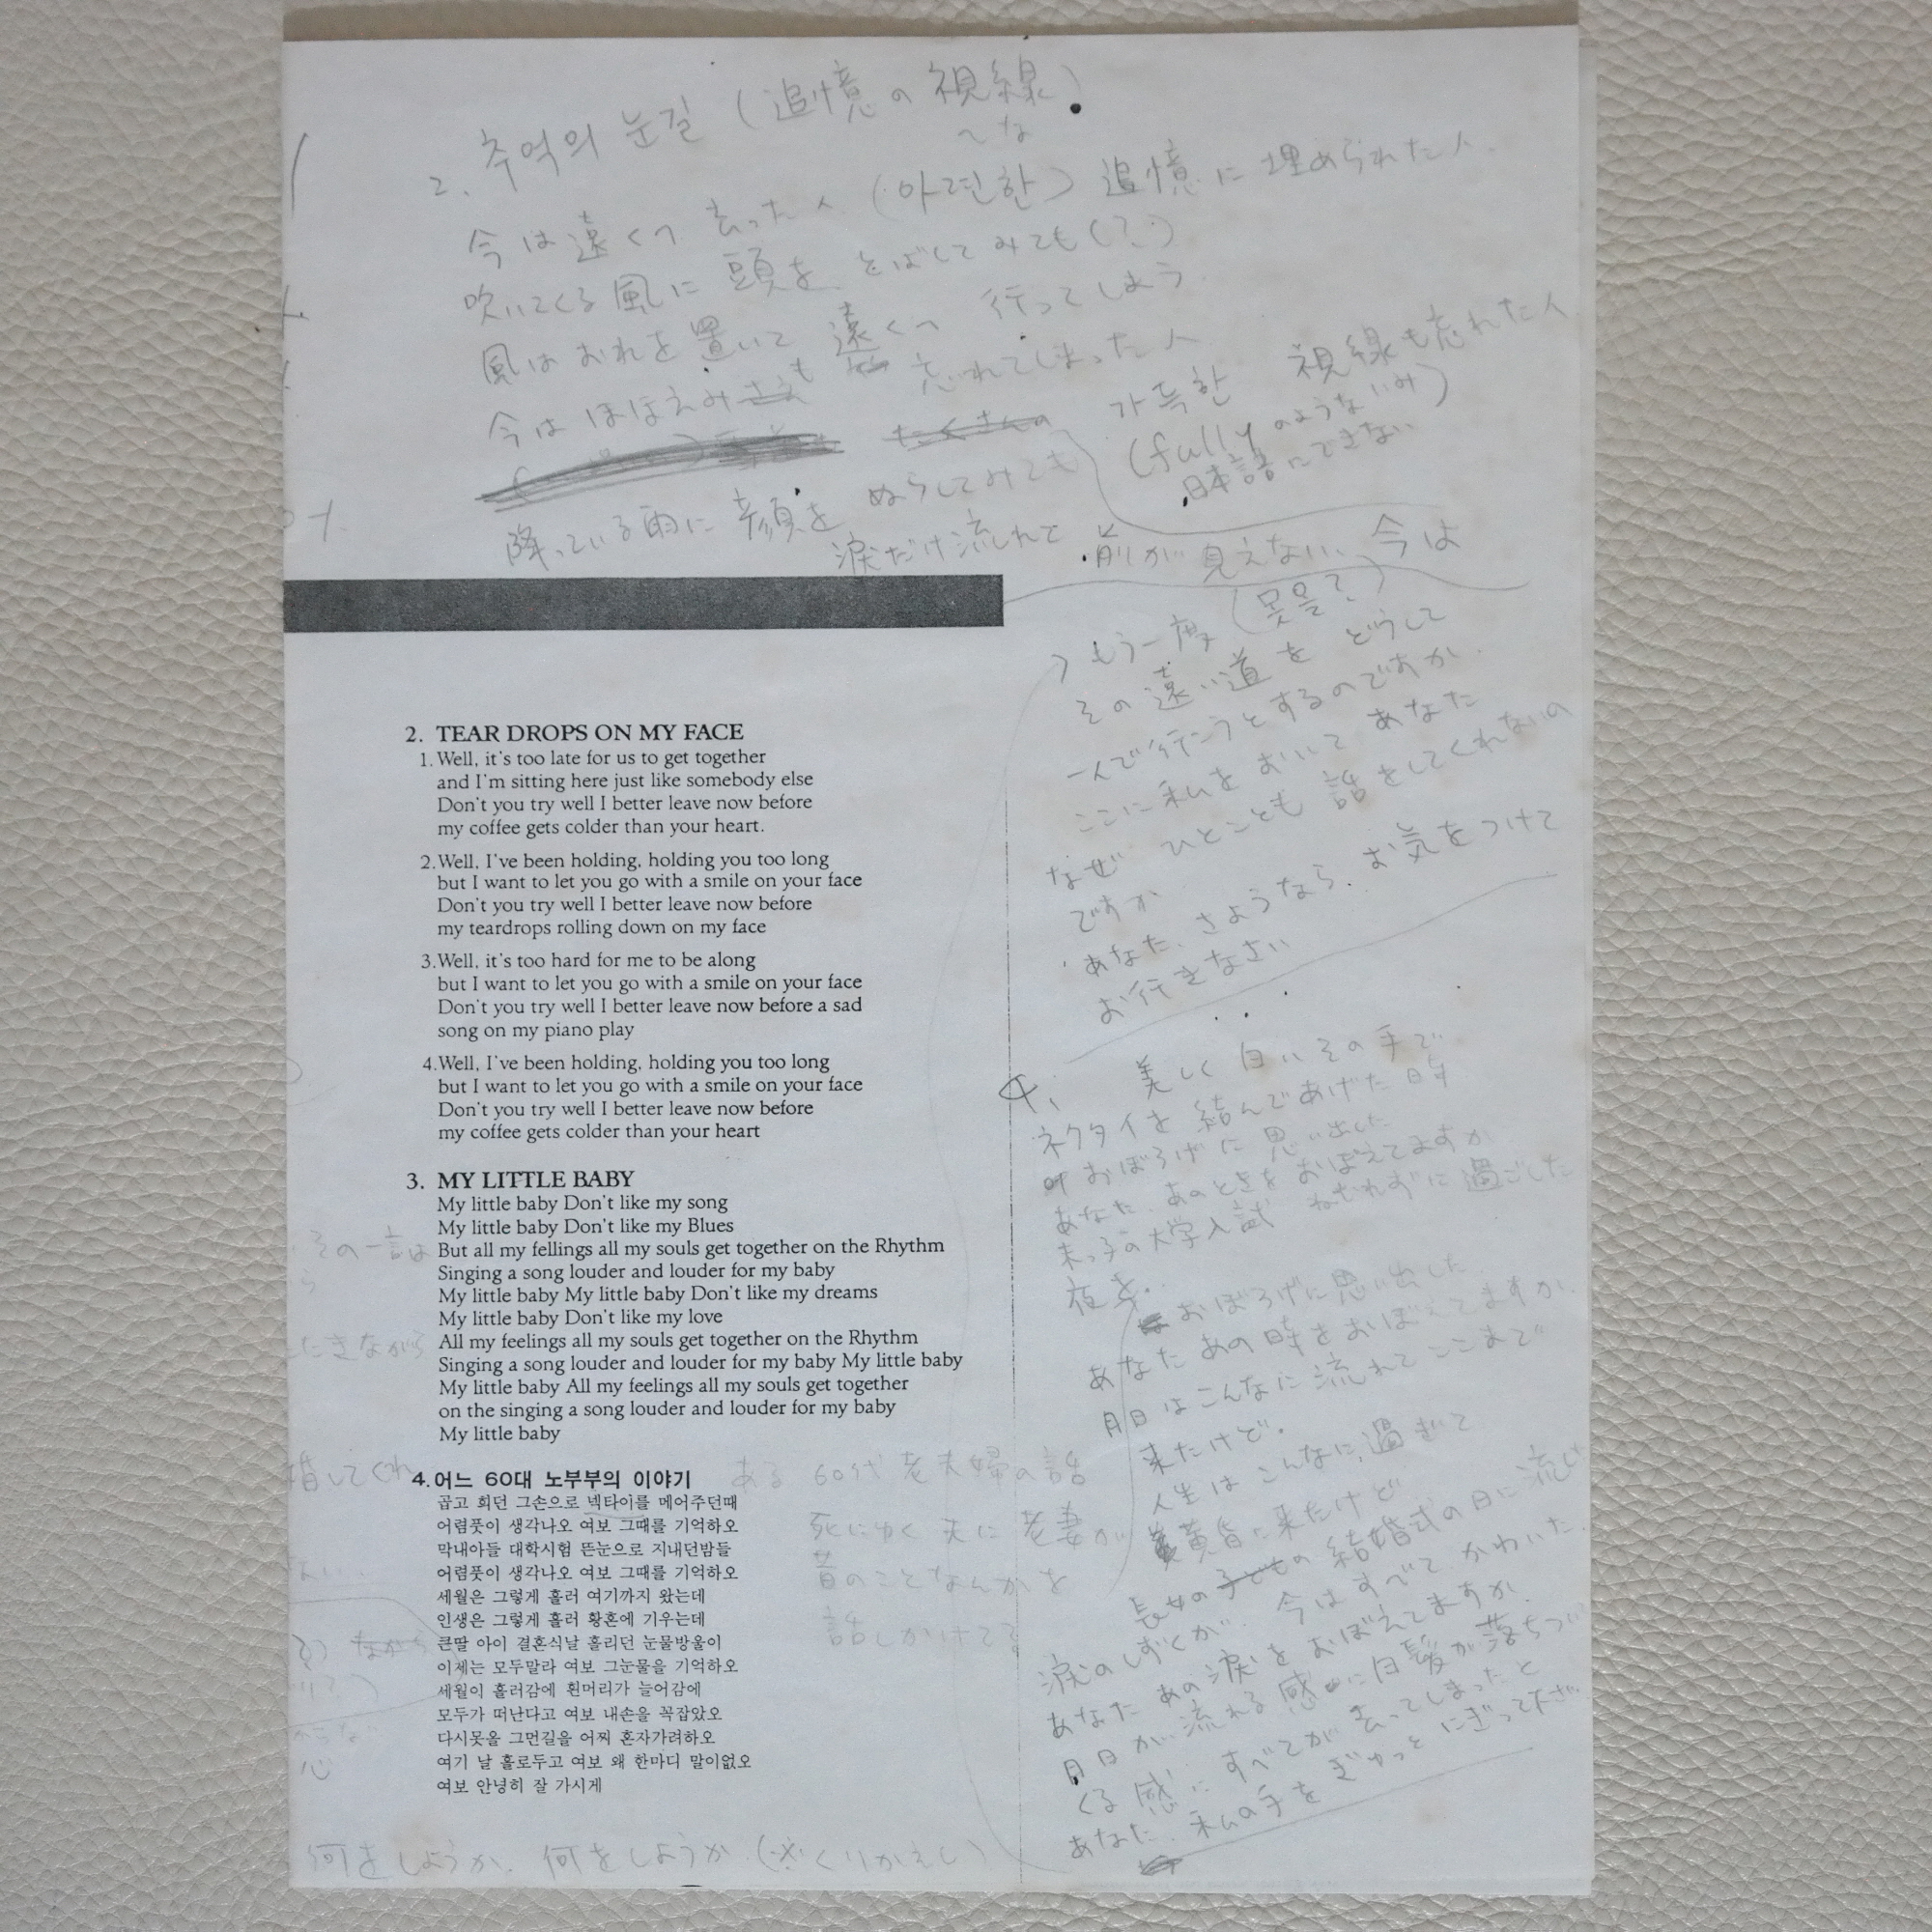 2. 추억의 눈길 (追憶の視線)
へな
今は遠くへ去った人 (아련한) 追憶に埋められた人.
吹いてくる風に頭を とばしてみても(?)
風はおれを置いて遠くへ 行ってしまう.
今はほほえみも 忘れてしまった人
たくさんの 가득한 視線も忘れた人
(fullyのようないみ)
日本語にできない
降っている雨に顔を ぬらしてみても
涙だけ流れて 前が見えない 今は
2. TEAR DROPS ON MY FACE
1. Well, it's too late for us to get together
and I'm sitting here just like somebody else
Don't you try well I better leave now before
my coffee gets colder than your heart.
2. Well, I've been holding, holding you too long
but I want to let you go with a smile on your face
Don't you try well I better leave now before
my teardrops rolling down on my face
3. Well, it's too hard for me to be along
but I want to let you go with a smile on your face
Don't you try well I better leave now before a sad
song on my piano play
4. Well, I've been holding, holding you too long
but I want to let you go with a smile on your face
Don't you try well I better leave now before
my coffee gets colder than your heart
3. MY LITTLE BABY
My little baby Don't like my song
My little baby Don't like my Blues
But all my fellings all my souls get together on the Rhythm
Singing a song louder and louder for my baby
My little baby My little baby Don't like my dreams
My little baby Don't like my love
All my feelings all my souls get together on the Rhythm
Singing a song louder and louder for my baby My little baby
My little baby All my feelings all my souls get together
on the singing a song louder and louder for my baby
My little baby
4. 어느 60대 노부부의 이야기
곱고 희던 그손으로 넥타이를 메어주던때
어렴풋이 생각나오 여보 그때를 기억하오
막내아들 대학시험 뜬눈으로 지내던밤들
어렴풋이 생각나오 여보 그때를 기억하오
세월은 그렇게 흘러 여기까지 왔는데
인생은 그렇게 흘러 황혼에 기우는데
큰딸 아이 결혼식날 흘리던 눈물방울이
이제는 모두말라 여보 그눈물을 기억하오
세월이 흘러감에 흰머리가 늘어감에
모두가 떠난다고 여보 내손을 꼭잡았오
다시못올 그먼길을 어찌 혼자가려하오
여기 날 홀로두고 여보 왜 한마디 말이없오
여보 안녕히 잘 가시게
ある 60代 老夫婦の話
死にゆく夫に老妻が
昔のことなんかを
話しかけてる
もう一度 (못올?)
その遠い道を どうして
一人で行こうとするのですか.
ここに私をおいて あなた
なぜ ひとことも 話をしてくれないの
ですか
あなた、さようなら. お気をつけて
お行きなさい
4. 美しく白いその手で
ネクタイを結んであげた時
おぼろげに思い出した
あなた、あのときをおぼえてますか
末っ子の大学入試 ねむれずに過ごした
夜
おぼろげに思い出した
あなた あの時をおぼえてますか.
月日はこんなに流れてここまで
来たけど.
人生は こんなに過ぎて
黄昏に来たけど
長女の 結婚式の日に流した
涙のしずくが 今はすべて かわいた.
あなた あの涙をおぼえてますか.
月日が流れる感に白髪が
くる感に すべてが去ってしまったと
あなた. 私の手を ぎゅっと にぎって
その一言は
たきながら
ながら
心
何をしようか. 何をしようか (※くりかえし)